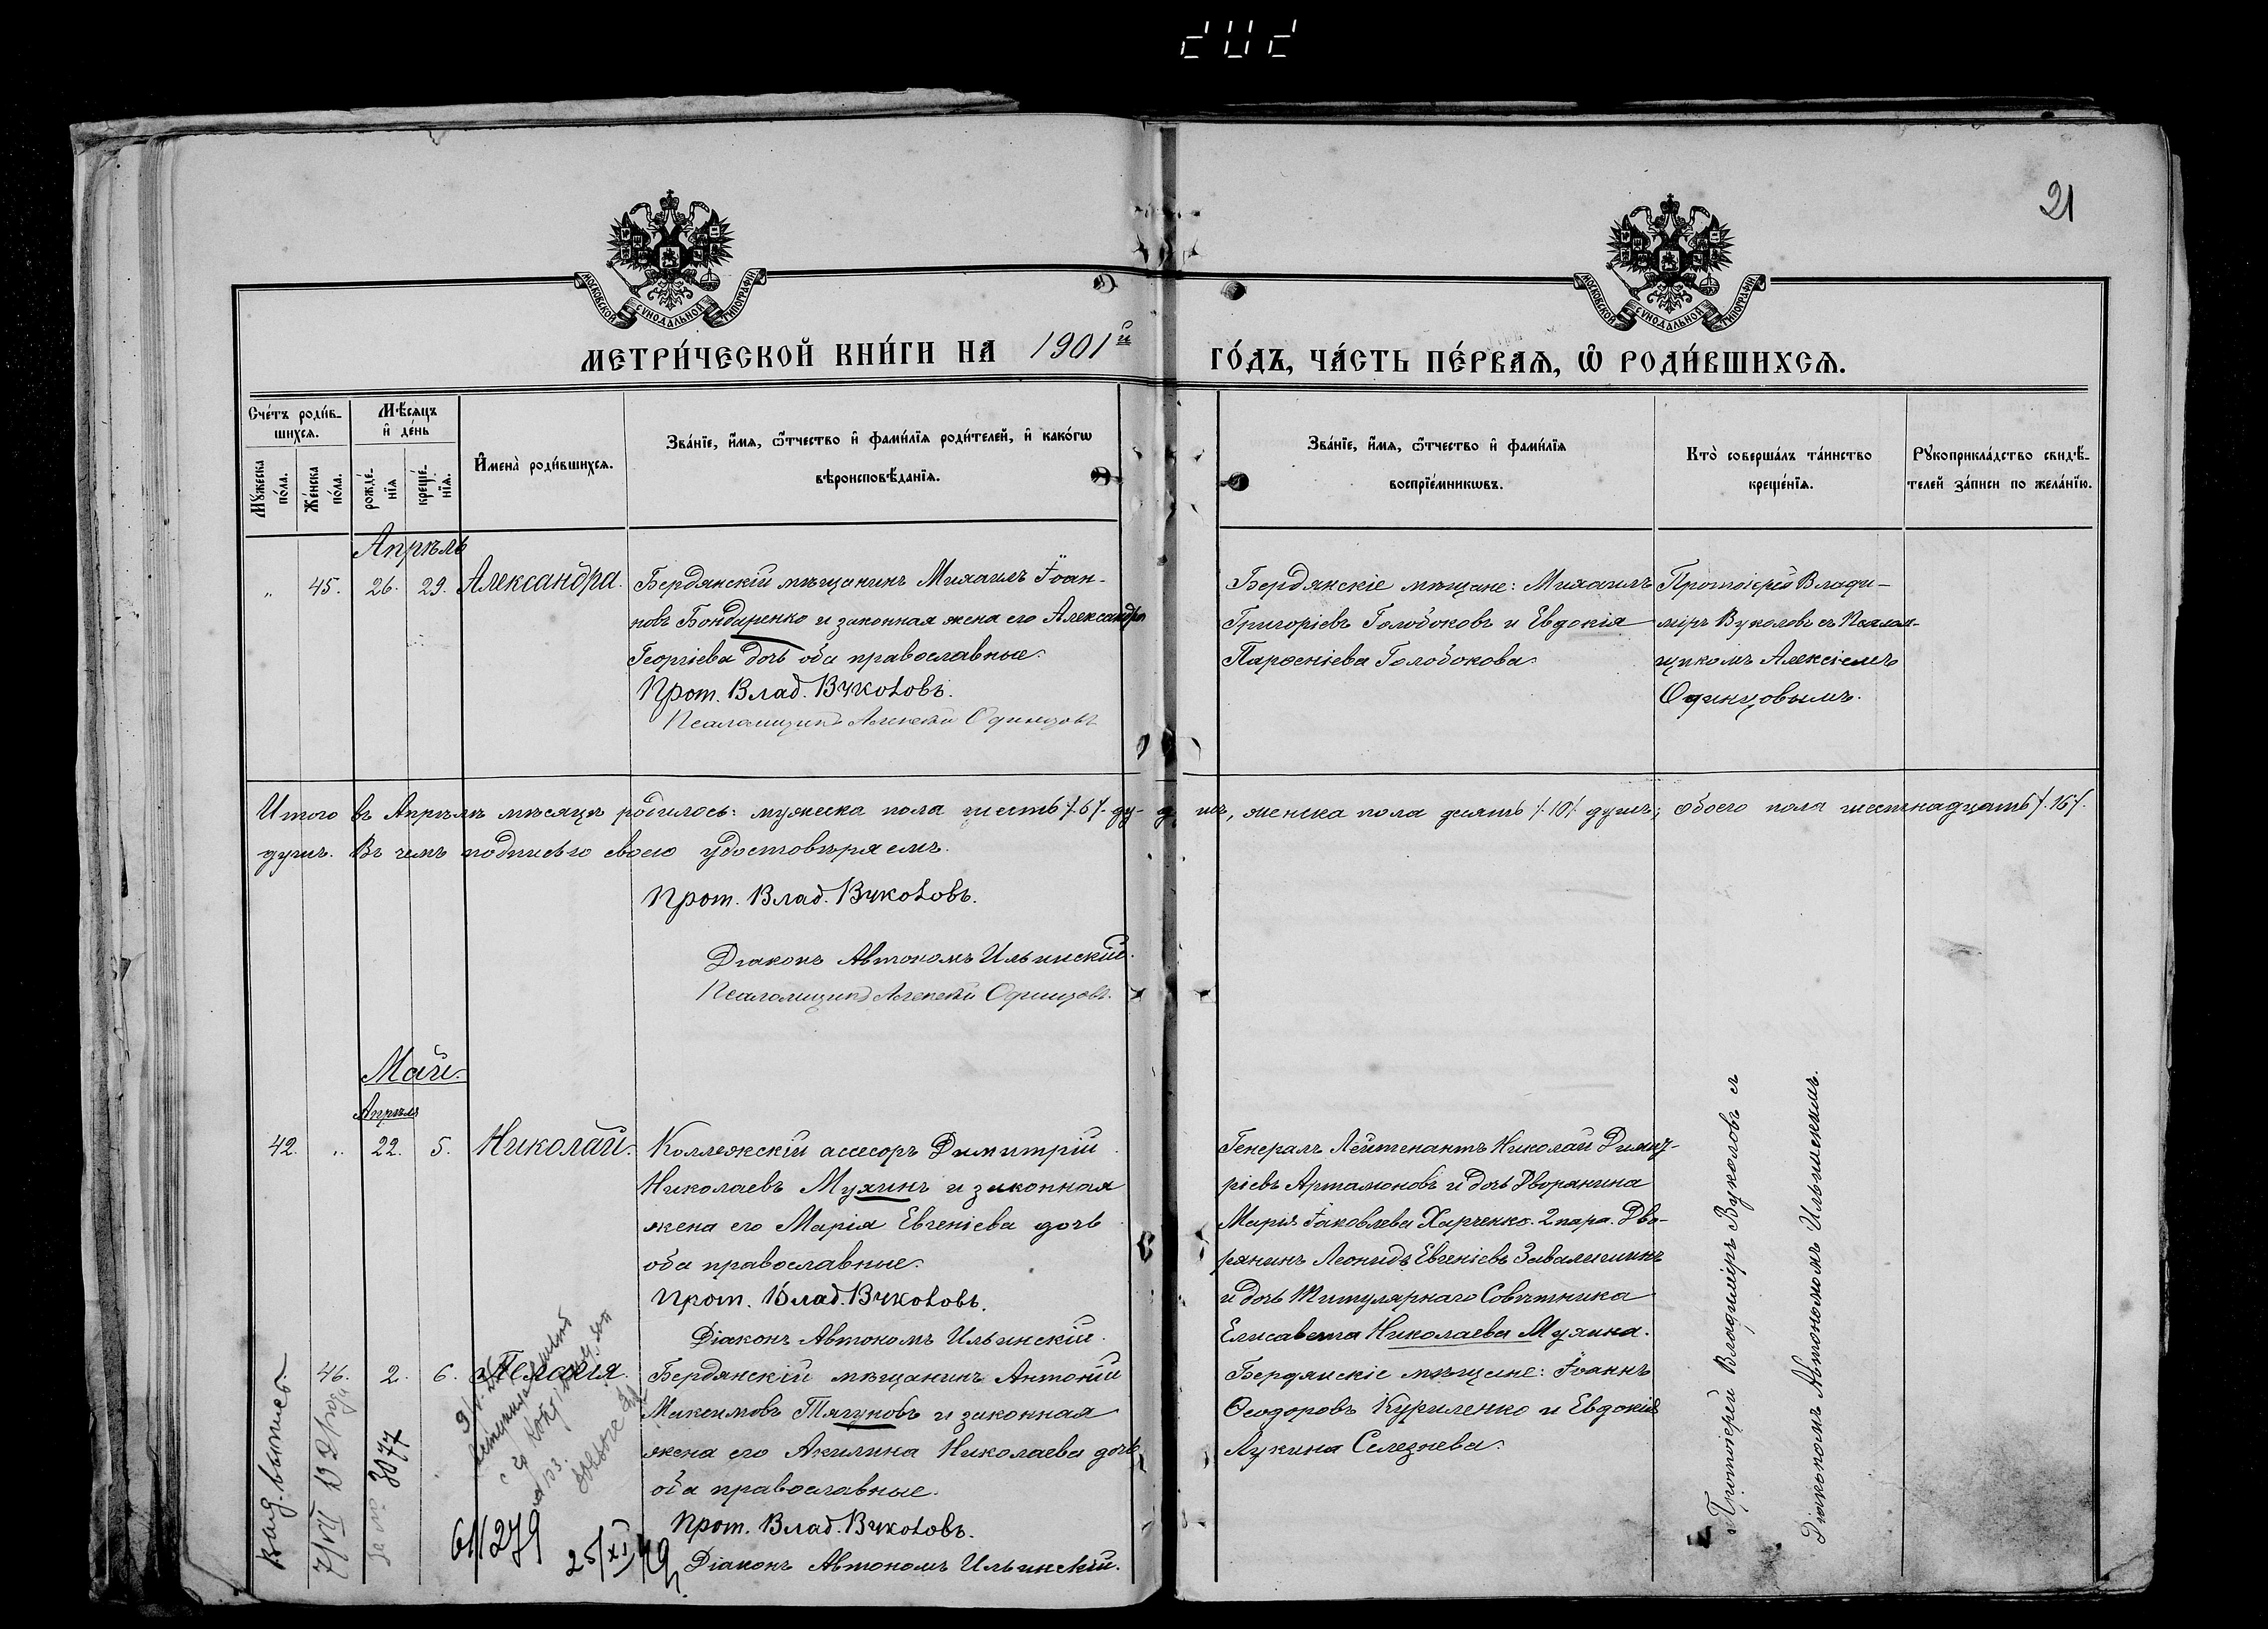 202
21
МОСКОВСКОЙ СУНОДАЛЬНОЙ ТИПОГРАФІИ
МОСКОВСКОЙ СУНОДАЛЬНОЙ ТИПОГРАФІИ
МЕТРИ́ЧЕСКОЙ КНИ́ГИ НА 1901й ГО́ДЪ, ЧА́СТЬ ПЕ́РВАЯ, Ѡ҆ РОДИ́ВШИХСЯ.
Сче́тъ роди́в-
шихся.
Мꙋ́жеска
по́ла.
Же́нска
по́ла.
Мѣ́сяцъ
и҆ де́нь
рожде́-
нїя
креще́-
нїя.
И҆мена̀ роди́вшихся.
Зва́нїе, и҆́мя, ѻ҆́тчество и҆ фами́лїя роди́телей, и҆ како́гѡ
вѣроисповѣ́данїя.
Зва́нїе, и҆́мя, ѻ҆́тчество и҆ фами́лїя
воспрїе́мникѡвъ.
Кто̀ соверша́лъ та́инство
креще́нїя.
Рꙋкоприкла́дство свидѣ́-
телей за́писи по жела́нїю.
Апрѣль
„ 45. 26. 29. Александра.
Бердянскій мѣщанинъ Михаилъ Іоан-
новъ Бондаренко и законная жена его Александра
Георгіева дочь оба православные.
Прот. Влад. Вуколовъ.
Псаломщикъ Алексѣй Одинцовъ
Бердянскіе мѣщане: Михаилъ
Григоріевъ Голобоковъ и Евдокія
Парѳеніева Голобокова.
Протоіерей Влади-
міръ Вуколовъ съ Псалом-
щикомъ Алексіемъ
Одинцовымъ.
Итого въ Апрѣлѣ мѣсяцѣ родилось: мужеска пола шесть /.6/. ду- шъ, женска пола десять /.10/. душъ; обоего пола шестнадцать /.16/.
душъ. Въ чемъ подписью своею удостовѣряемъ.
Прот. Влад. Вуколовъ.
Діаконъ Автономъ Ильинскій.
Псаломщикъ Алексѣй Одинцовъ.
Май.
Апрѣля
42. „ 22. 5. Николай.
Коллежскій ассесоръ Димитрій
Николаевъ Мухинъ и законная
жена его Марія Евгеніева дочь
оба православные.
Прот. Влад. Вуколовъ.
Діаконъ Автономъ Ильинскій.
Генералъ Лейтенантъ Николай Димит-
ріевъ Артамоновъ и дочь Дворянина
Марія Іаковлева Харченко. 2 пара. Дво-
рянинъ Леонидъ Евгеніевъ Завалишинъ
и дочь Титулярнаго Совѣтника
Елисавета Николаева Мухина.
46. 2. 6. Пелагія.
Бердянскій мѣщанинъ Антоній
Максимовъ Тягуновъ и законная
жена его Акилина Николаева дочь
оба православные.
Прот. Влад. Вуколовъ.
Діаконъ Автономъ Ильинскій.
Бердянскіе мѣщане: Іоаннъ
Ѳеодоровъ Куриленко и Евдокія
Лукина Селезнева.
Протоіерей Владиміръ Вуколовъ съ
Діакономъ Автономомъ Ильинскимъ.
за № 3077
61/279
25/XI 49